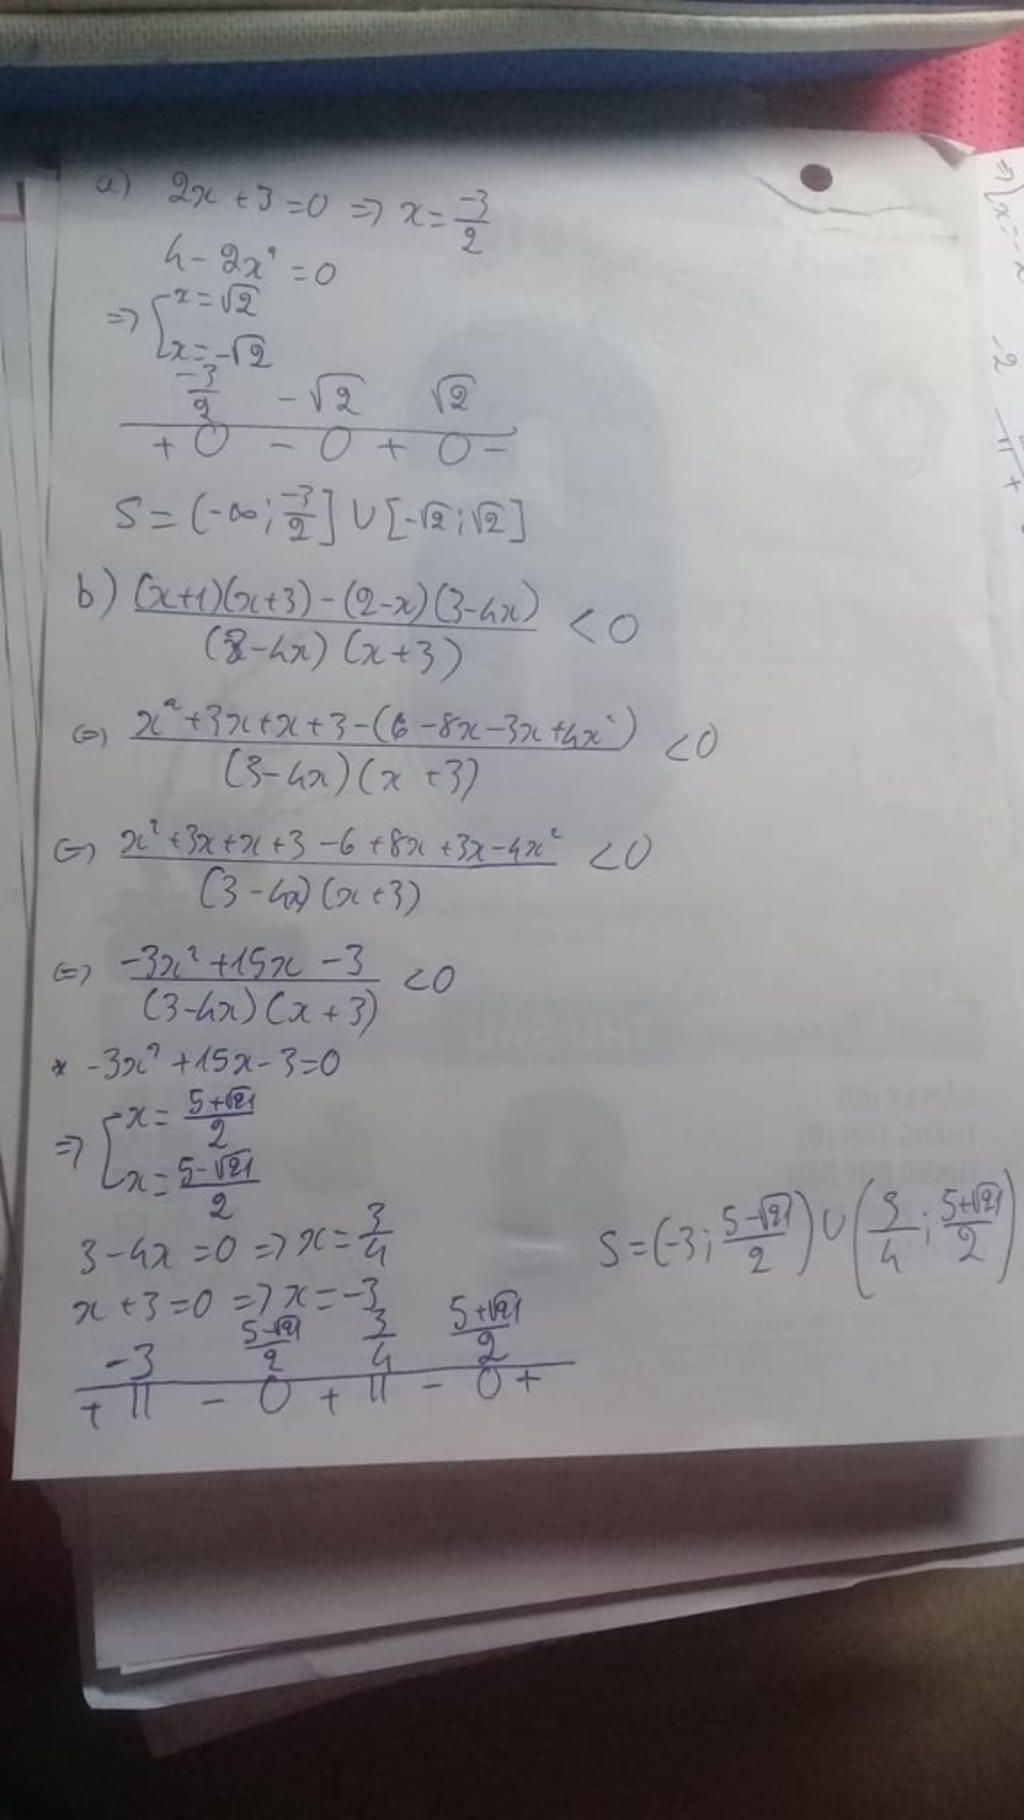 a) 2x + 3 = 0 => x = -3/2
4 - 2x² = 0
=> [ x = √2
x = -√2
-3/2 -√2 √2
+ 0 - 0 + 0 -
S = (-∞; -3/2] ∪ [-√2; √2]
b) (x+1)(x+3) - (2-x)(3-4x) / (3-4x)(x+3) < 0
<=> x² + 3x + x + 3 - (6 - 8x - 3x + 4x²) / (3-4x)(x+3) < 0
<=> x² + 3x + x + 3 - 6 + 8x + 3x - 4x² / (3-4x)(x+3) < 0
<=> -3x² + 15x - 3 / (3-4x)(x+3) < 0
* -3x² + 15x - 3 = 0
=> [ x = 5+√21 / 2
x = 5-√21 / 2
3 - 4x = 0 => x = 3/4
x + 3 = 0 => x = -3
-3 5-√21/2 3/4 5+√21/2
+ || - 0 + || - 0 +
S = (-3; 5-√21/2) ∪ (3/4; 5+√21/2)
THỨ SÁU